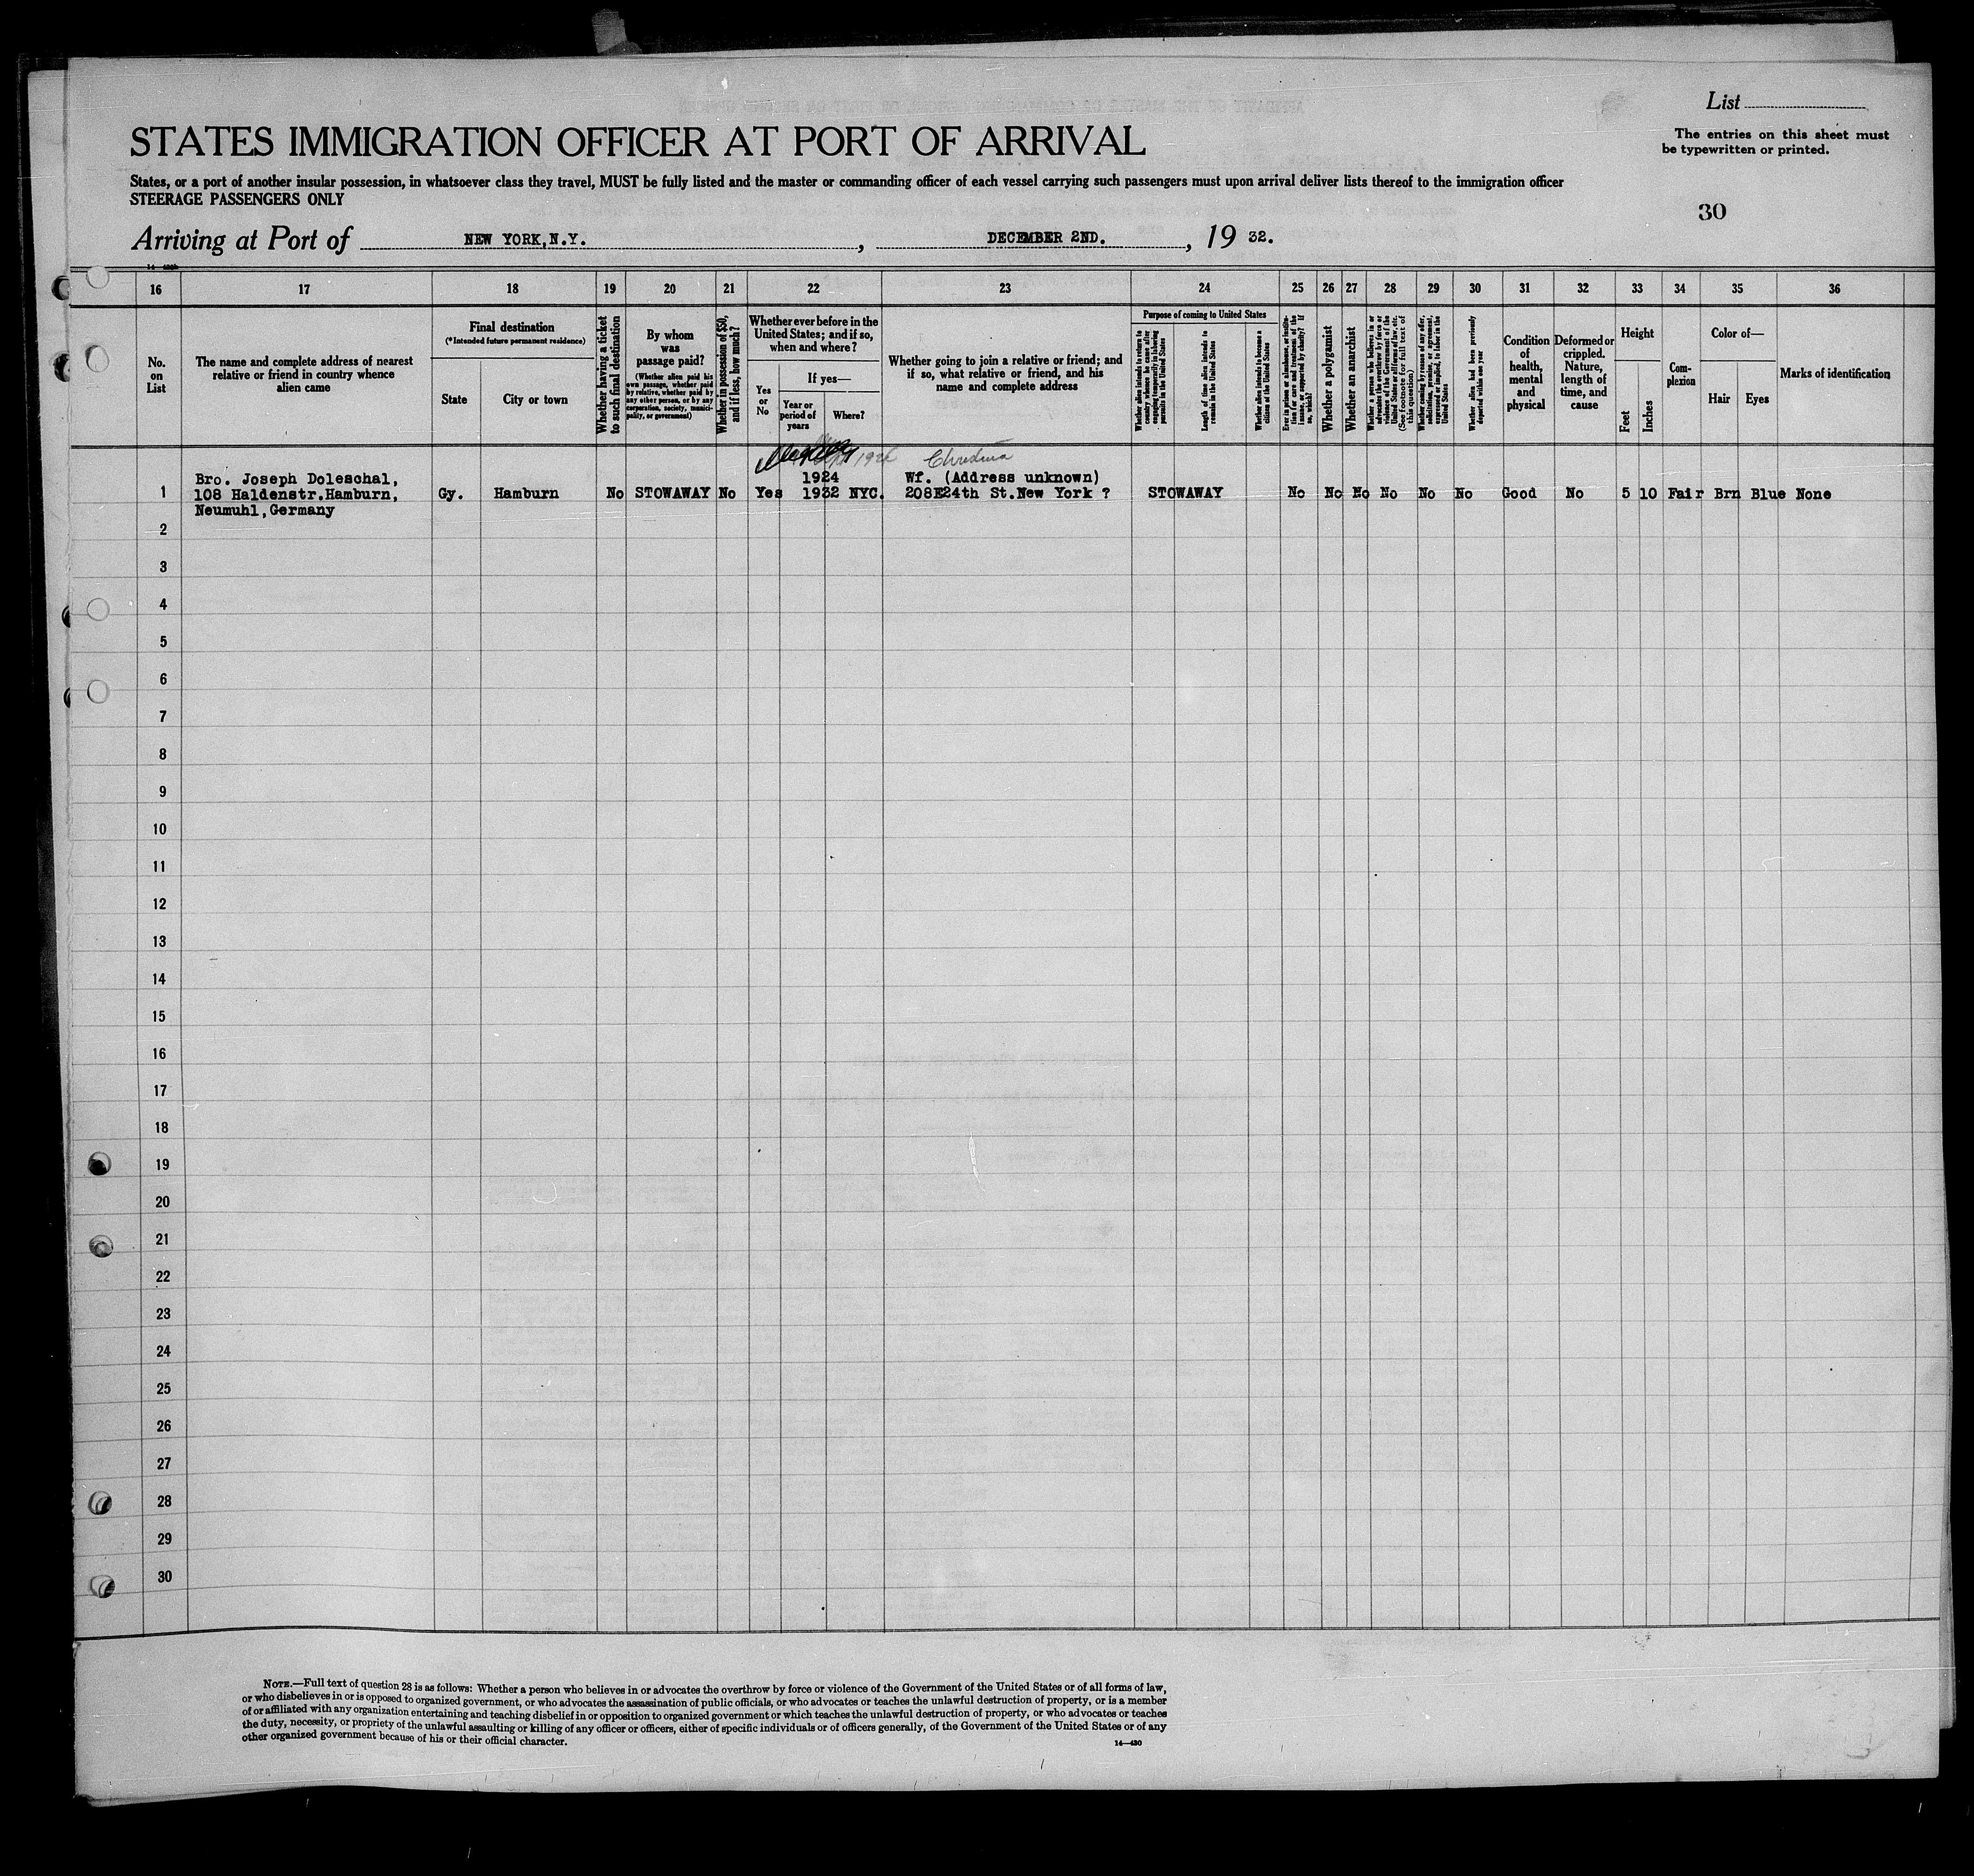 List
STATES IMMIGRATION OFFICER AT PORT OF ARRIVAL
The entries on this sheet must
be typewritten or printed.
States, or a port of another insular possession, in whatsoever class they travel, MUST be fully listed and the master or commanding officer of each vessel carrying such passengers must upon arrival deliver lists thereof to the immigration officer
STEERAGE PASSENGERS ONLY
30
Arriving at Port of NEW YORK,N.Y. , DECEMBER 2ND. , 19 32.
16 17 18 19 20 21 22 23 24 25 26 27 28 29 30 31 32 33 34 35 36
No.
on
List
The name and complete address of nearest
relative or friend in country whence
alien came
Final destination
(*Intended future permanent residence)
State
City or town
Whether having a ticket
to such final destination
By whom
was
passage paid?
(Whether alien paid his
own passage, whether paid
by relative, whether paid by
any other person, or by any
corporation, society, munici-
pality, or government)
Whether in possession of $50,
and if less, how much?
Whether ever before in the
United States; and if so,
when and where?
Yes
or
No
If yes—
Year or
period of
years
Where?
Whether going to join a relative or friend; and
if so, what relative or friend, and his
name and complete address
Purpose of coming to United States
Whether alien intends to return to
country whence he came after
engaging temporarily in laboring
pursuits in the United States
Length of time alien intends to
remain in the United States
Whether alien intends to become a
citizen of the United States
Ever in prison or almshouse, or institu-
tion for care and treatment of the
insane, or supported by charity? If
so, which?
Whether a polygamist
Whether an anarchist
Whether a person who believes in or
advocates the overthrow by force or
violence of the Government of the
United States or all forms of law, etc.
(See footnote for full text of
this question)
Whether coming by reason of any offer,
solicitation, promise, or agreement,
expressed or implied, to labor in the
United States
Whether alien had been previously
deported within one year
Condition
of
health,
mental
and
physical
Deformed or
crippled.
Nature,
length of
time, and
cause
Height
Feet
Inches
Com-
plexion
Color of—
Hair
Eyes
Marks of identification
192 Christina
Bro. Joseph Doleschal, 1924 Wf. (Address unknown)
1 108 Haldenstr.Hamburn, Gy. Hamburn No STOWAWAY No Yes 1932 NYC. 208E24th St.New York ? STOWAWAY No No No No No No Good No 5 10 Fair Brn Blue None
Neumuhl,Germany
2
3
4
5
6
7
8
9
10
11
12
13
14
15
16
17
18
19
20
21
22
23
24
25
26
27
28
29
30
NOTE.—Full text of question 28 is as follows: Whether a person who believes in or advocates the overthrow by force or violence of the Government of the United States or of all forms of law,
or who disbelieves in or is opposed to organized government, or who advocates the assassination of public officials, or who advocates or teaches the unlawful destruction of property, or is a member
of or affiliated with any organization entertaining and teaching disbelief in or opposition to organized government or which teaches the unlawful destruction of property, or who advocates or teaches
the duty, necessity, or propriety of the unlawful assaulting or killing of any officer or officers, either of specific individuals or of officers generally, of the Government of the United States or of any
other organized government because of his or their official character.
14—430